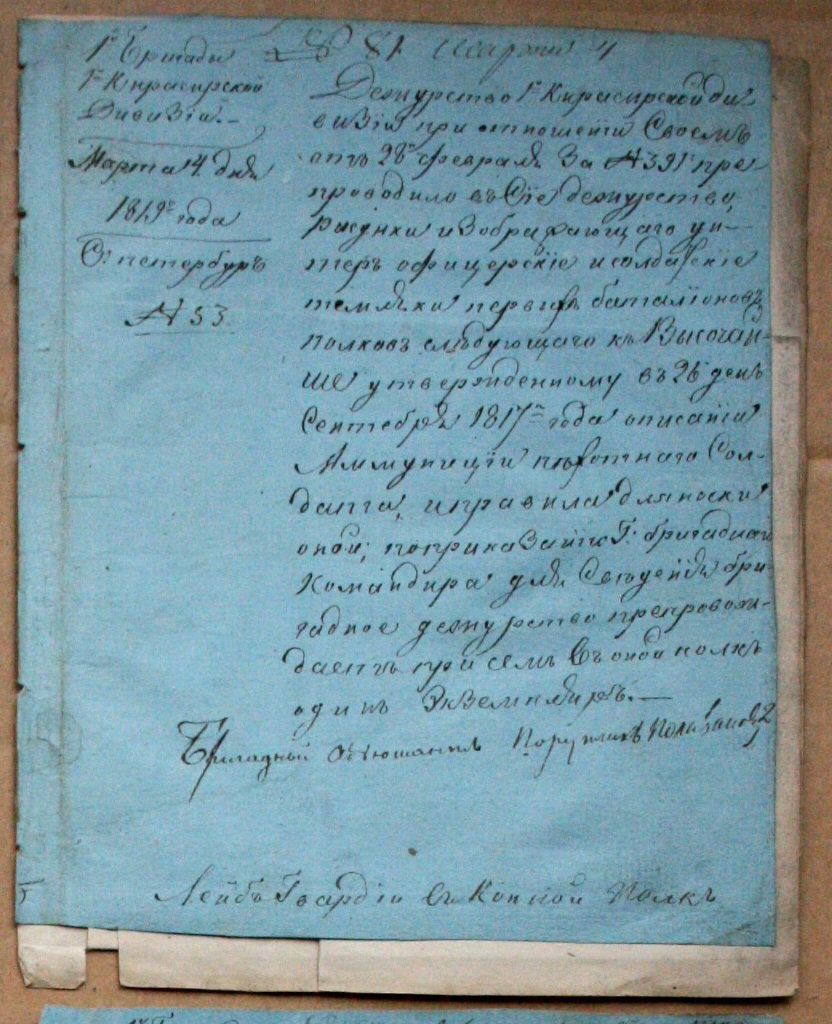 1й Бригады
1й Кирасирской
Дивизіи.
Марта 4. дня
1819го года
С: петербургъ
№ 53.
№ 81 Марта 4
Дежурство 1й Кирасирской ди
визіи при отношеніи Своемъ
отъ 28го февраля за № 391 пре
проводило въ Сіе дежурство,
рисунки изображающаго ун-
теръ офицерскіе и солдатскіе
темляки первыхъ баталіоновъ
полковъ слѣдующаго къ Высочай
ше утвержденному въ 26 день
Сентебря 1817го года описанію
Аммуниціи пѣхотнаго Сол-
дата, и правила для носки
оной; по приказанію Г: бригаднаго
Командира для Сведенія бри-
гадное дежурство препровож-
даетъ при семъ въ оной полкъ
одинъ Экземпляръ.—
Бригадный Адъютантъ Порутчикъ
Лейбъ Гвардіи въ Конной Полкъ